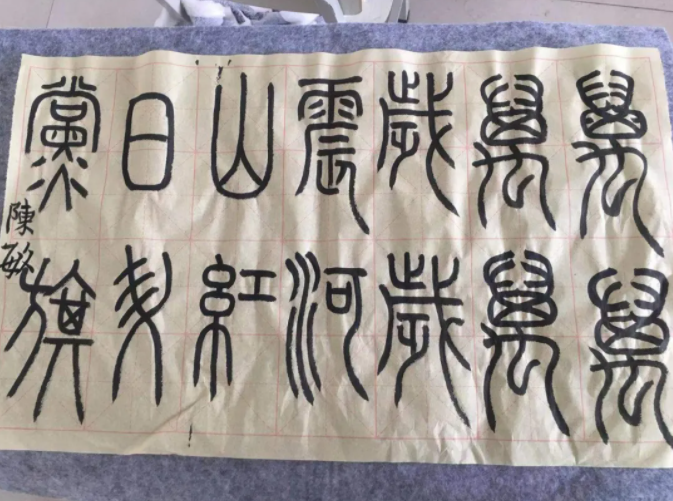 萬萬
萬萬
歲歲
震河
山紅
日
黨旗
陳敏